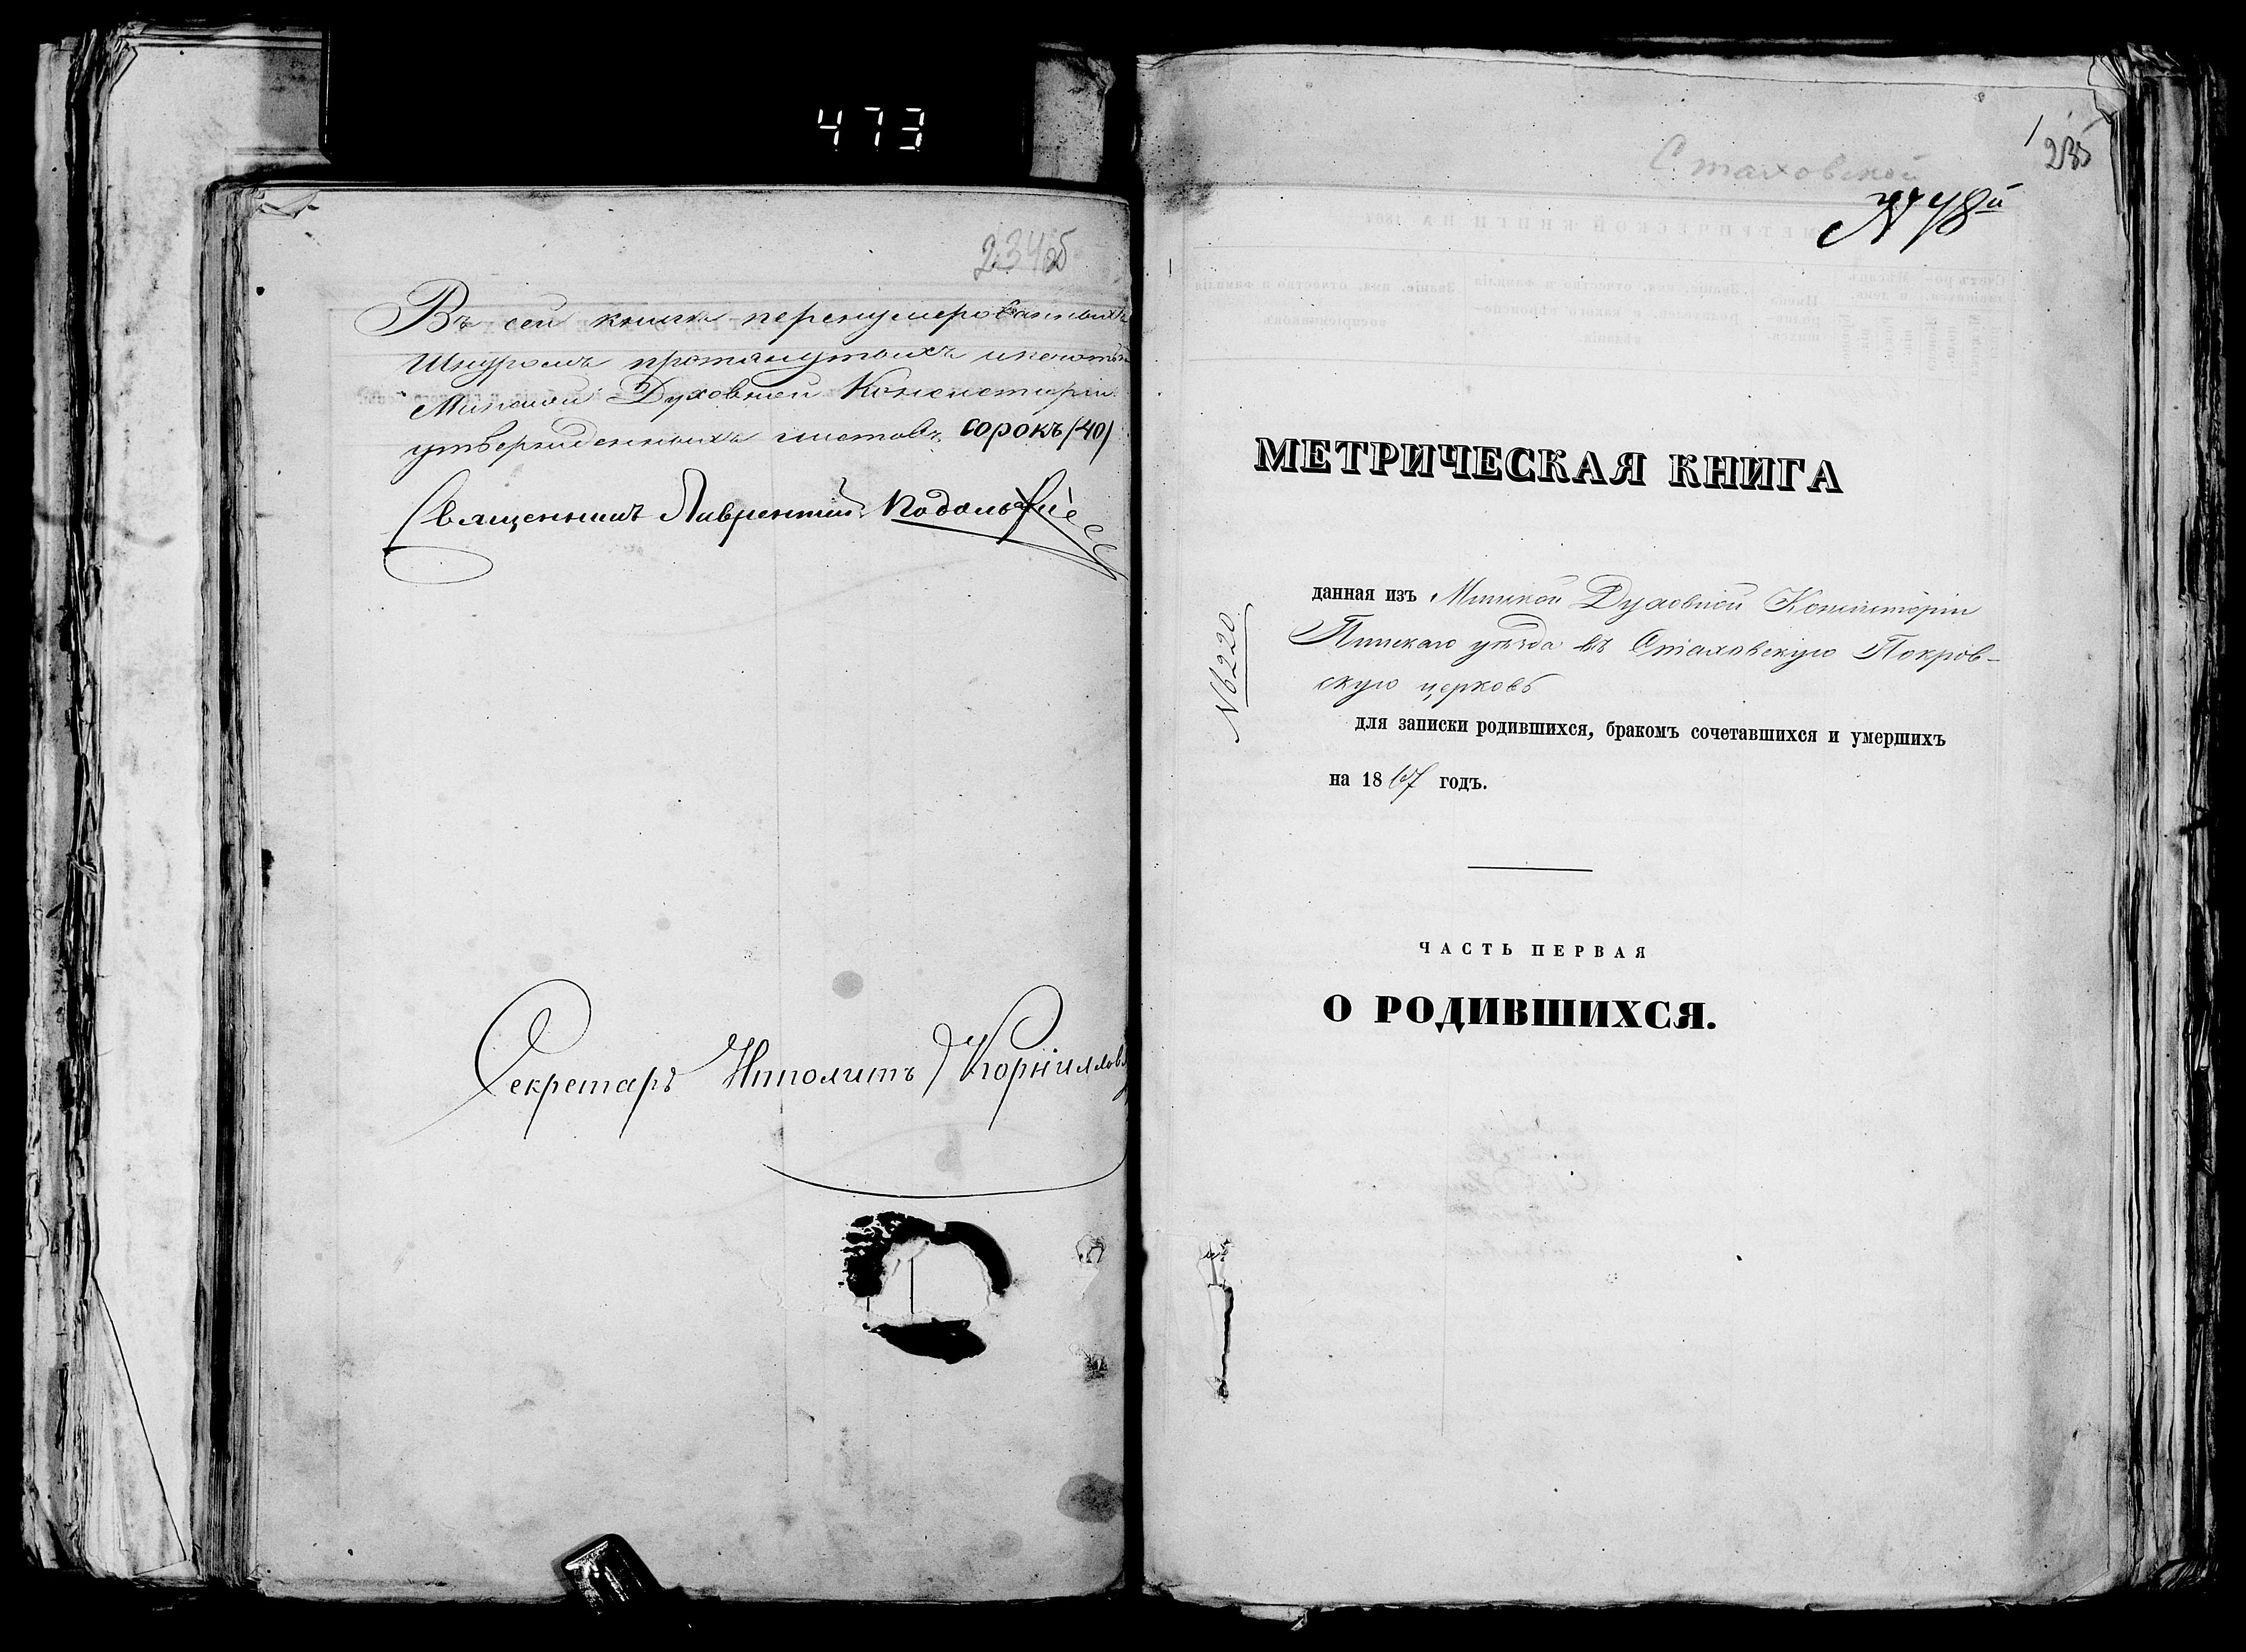 473
234об
Въ сей книгѣ перенумерованныхъ
шнуромъ протянутыхъ и печатью
Минской Духовной Консисторіи
утвержденныхъ листовъ сорокъ (40)
Священникъ Лаврентій
Секретарь Ипполитъ Корниллов
1
235
Стаховской
№ 48й
МЕТРИЧЕСКАЯ КНИГА
данная изъ Минской Духовной Консисторіи
Пинскаго уѣзда въ Стаховскую Покров-
скую церковь
№220
для записки родившихся, бракомъ сочетавшихся и умершихъ
на 1867 годъ.
ЧАСТЬ ПЕРВАЯ
О РОДИВШИХСЯ.